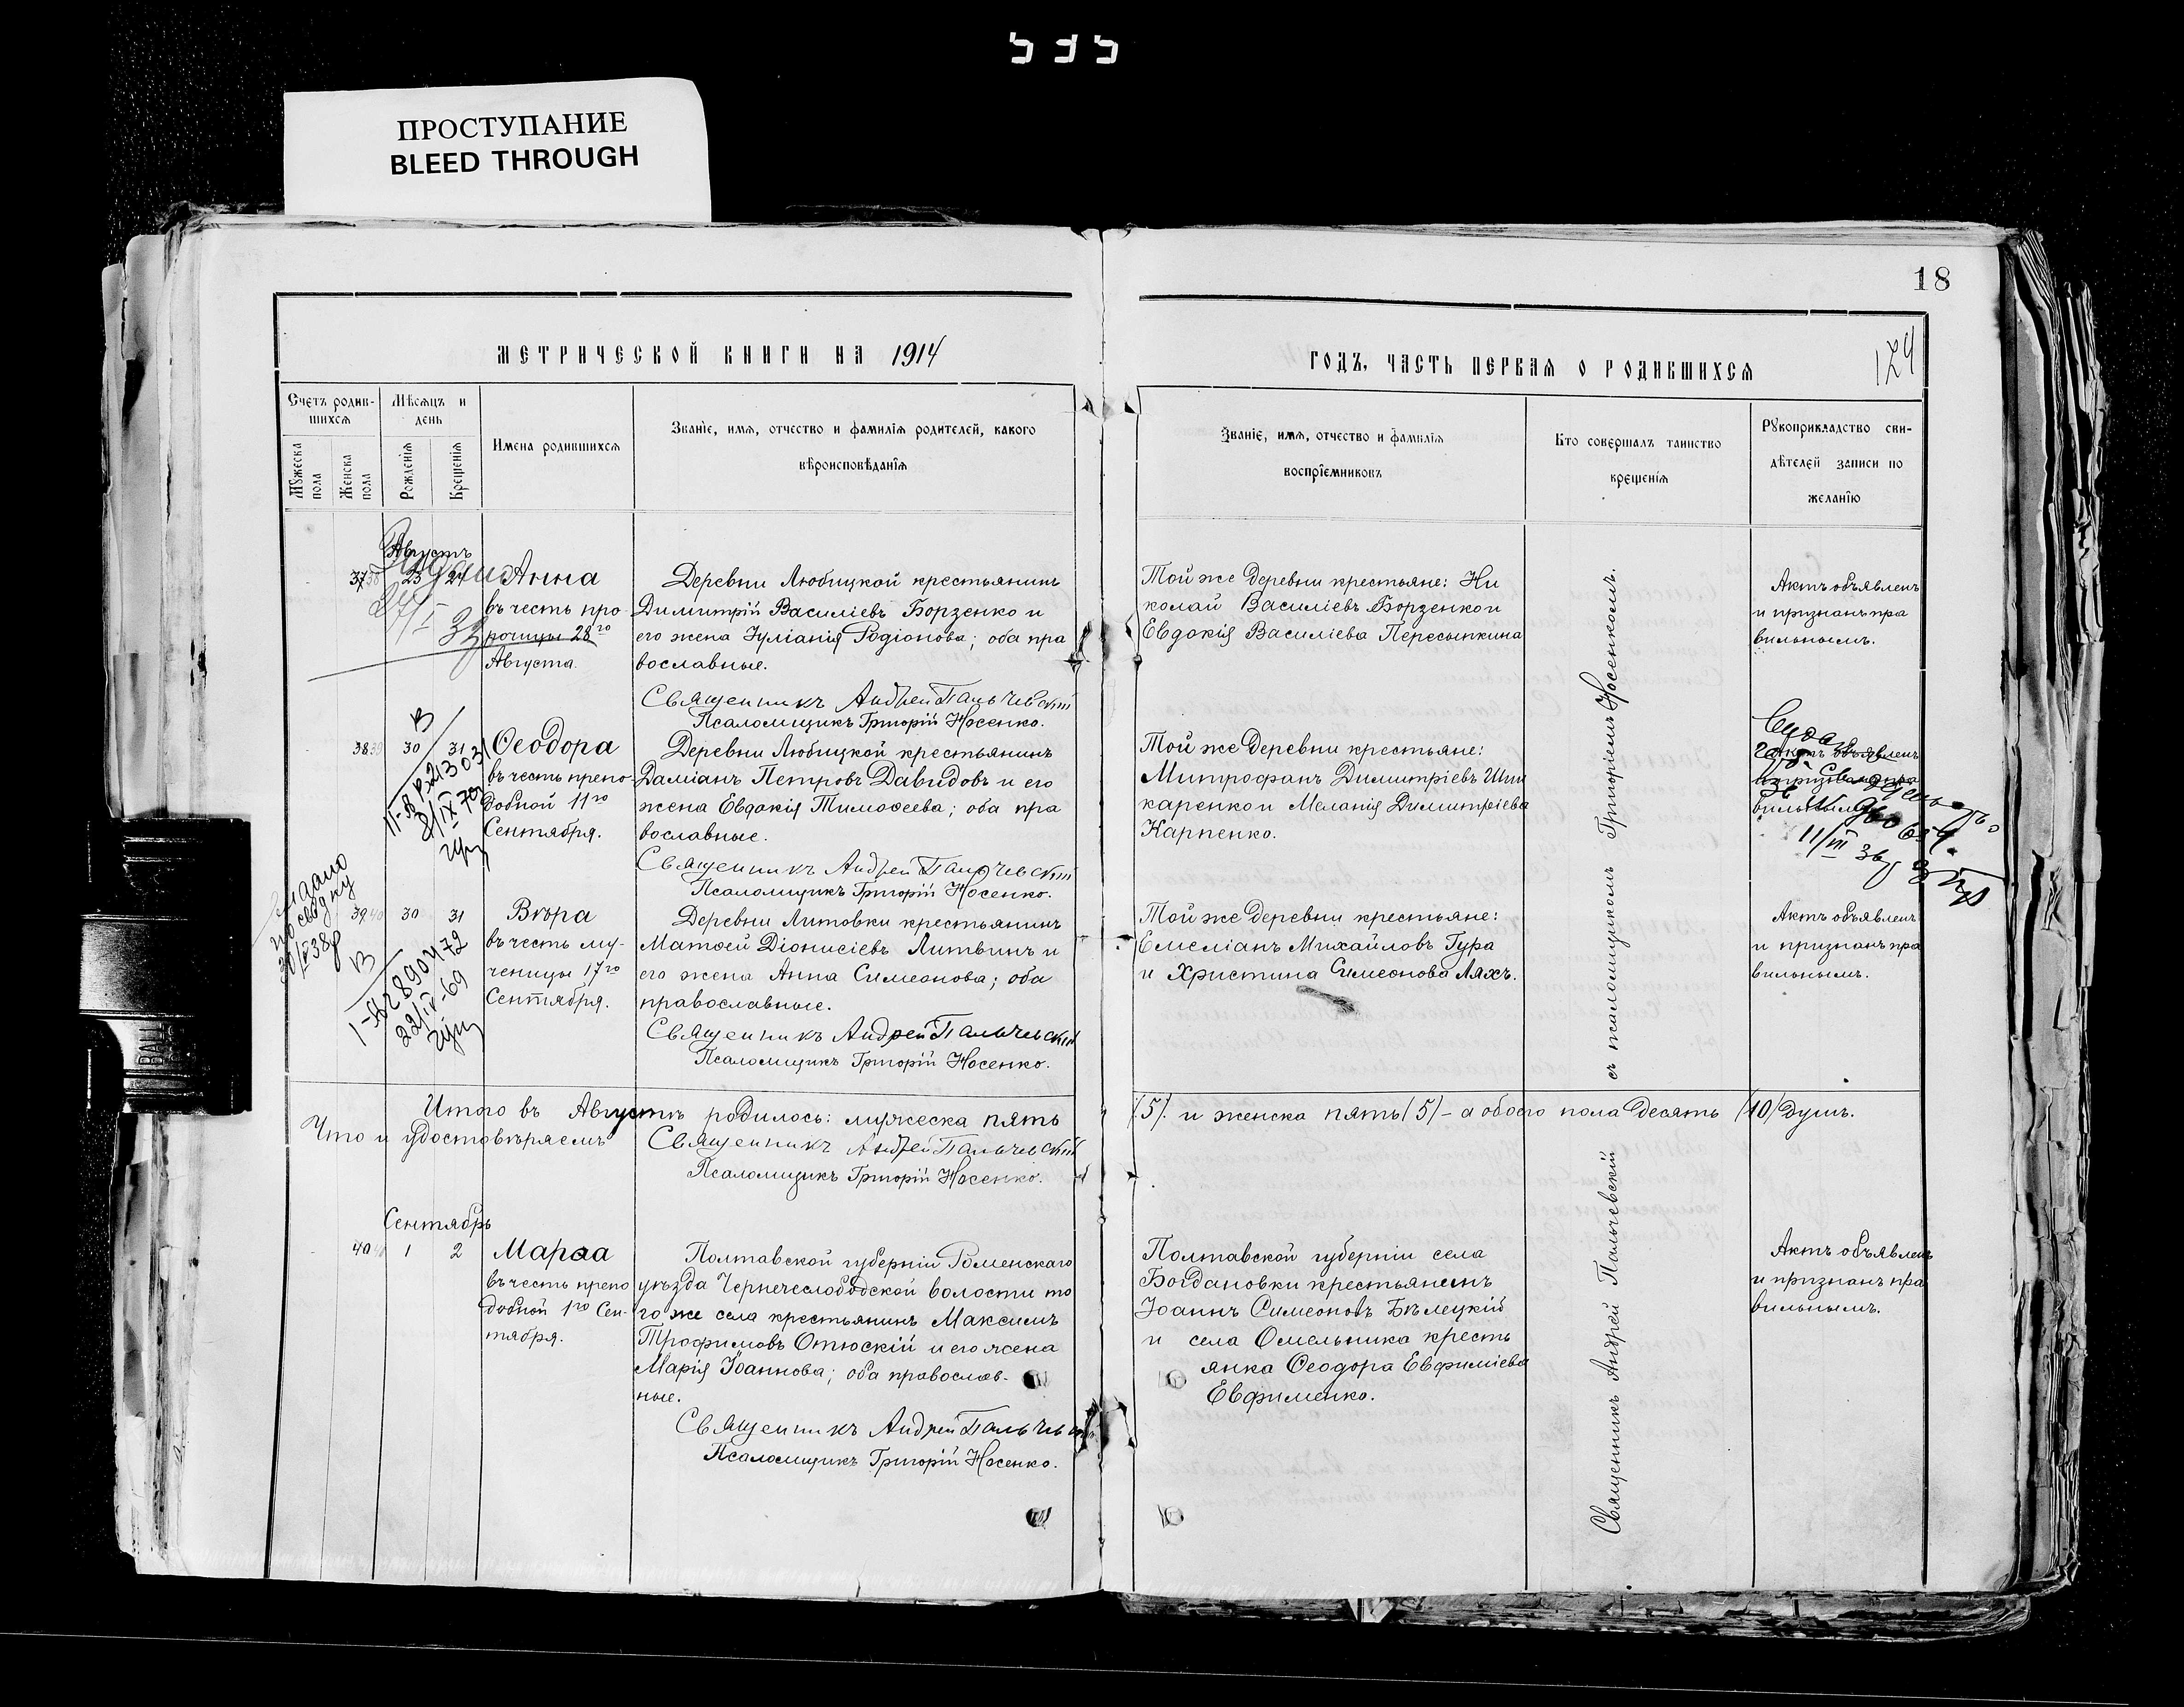 ПРОСТУПАНИЕ
BLEED THROUGH
18
МЕТРИЧЕСКОЙ КНИГИ НА 1914
ГОДЪ, ЧАСТЬ ПЕРВАЯ О РОДИВШИХСЯ
124
Счетъ родив-
шихся
Мѣсяцъ и
день
Мужеска
пола
Женска
пола
Рожденія
Крещенія
Имена родившихся
Званіе, имя, отчество и фамилія родителей, какого
вѣроисповѣданія
Званіе, имя, отчество и фамилія
воспріемниковъ
Кто совершалъ таинство
крещенія
Рукоприкладство сви-
дѣтелей записи по
желанію
Августъ
37 23 24 Анна
въ честь про-
рочицы 28го
Августа.
Деревни Любицкой крестьянинъ
Димитрій Василіевъ Борзенко и
его жена Іуліанія Родіонова; оба пра
вославные.
Священникъ Андрей Пальчевскій
Псаломщикъ Григорій Носенко.
Той же деревни крестьяне: Ни
колай Василіевъ Борзенко и
Евдокія Василіева Пересыпкина
Актъ объявленъ
и признанъ пра
вильнымъ.
38 30 31 Ѳеодора
въ честь препо-
добной 11го
Сентября.
Деревни Любицкой крестьянинъ
Даміанъ Петровъ Давидовъ и его
жена Евдокія Тимоѳеева; оба пра
вославные.
Священникъ Андрей Пальчевскій
Псаломщикъ Григорій Носенко.
Той же деревни крестьяне:
Митрофанъ Димитріевъ Шин
каренко и Меланія Димитріева
Карпенко.
Актъ объявленъ
и признанъ пра
вильнымъ.
39 30 31 Вѣра
въ честь му-
ченицы 17го
Сентября.
Деревни Литовки крестьянинъ
Матѳей Діонисіевъ Литвинъ и
его жена Анна Симеонова; оба
православные.
Священникъ Андрей Пальчевскій
Псаломщикъ Григорій Носенко.
Той же деревни крестьяне:
Емеліанъ Михайловъ Гура
и Христина Симеонова Ляхъ.
Актъ объявленъ
и признанъ пра
вильнымъ.
Итого въ Августѣ родилось: мужеска пять
/5/. и женска пять /5/ - а обоего пола десять /10/ душъ.
Что и удостовѣряемъ
Священникъ Андрей Пальчевскій
Псаломщикъ Григорій Носенко.
Сентябрь
40 1 2 Марѳа
въ честь препо
добной 1го Сен-
тября.
Полтавской губерніи Роменскаго
уѣзда Чернечеслободской волости то
го же села крестьянинъ Максимъ
Трофимовъ Отюскій и его жена
Марія Іоаннова; оба православ-
ные.
Священникъ Андрей Пальчевскій
Псаломщикъ Григорій Носенко.
Полтавской губерніи села
Богдановки крестьянинъ
Іоаннъ Симеоновъ Бѣлецкій
и села Омельника кресть
янка Ѳеодора Евфиміева
Евфименко.
Актъ объявленъ
и признанъ пра
вильнымъ.
Священникъ Андрей Пальчевскій съ псаломщикомъ Григоріемъ Носенкомъ.